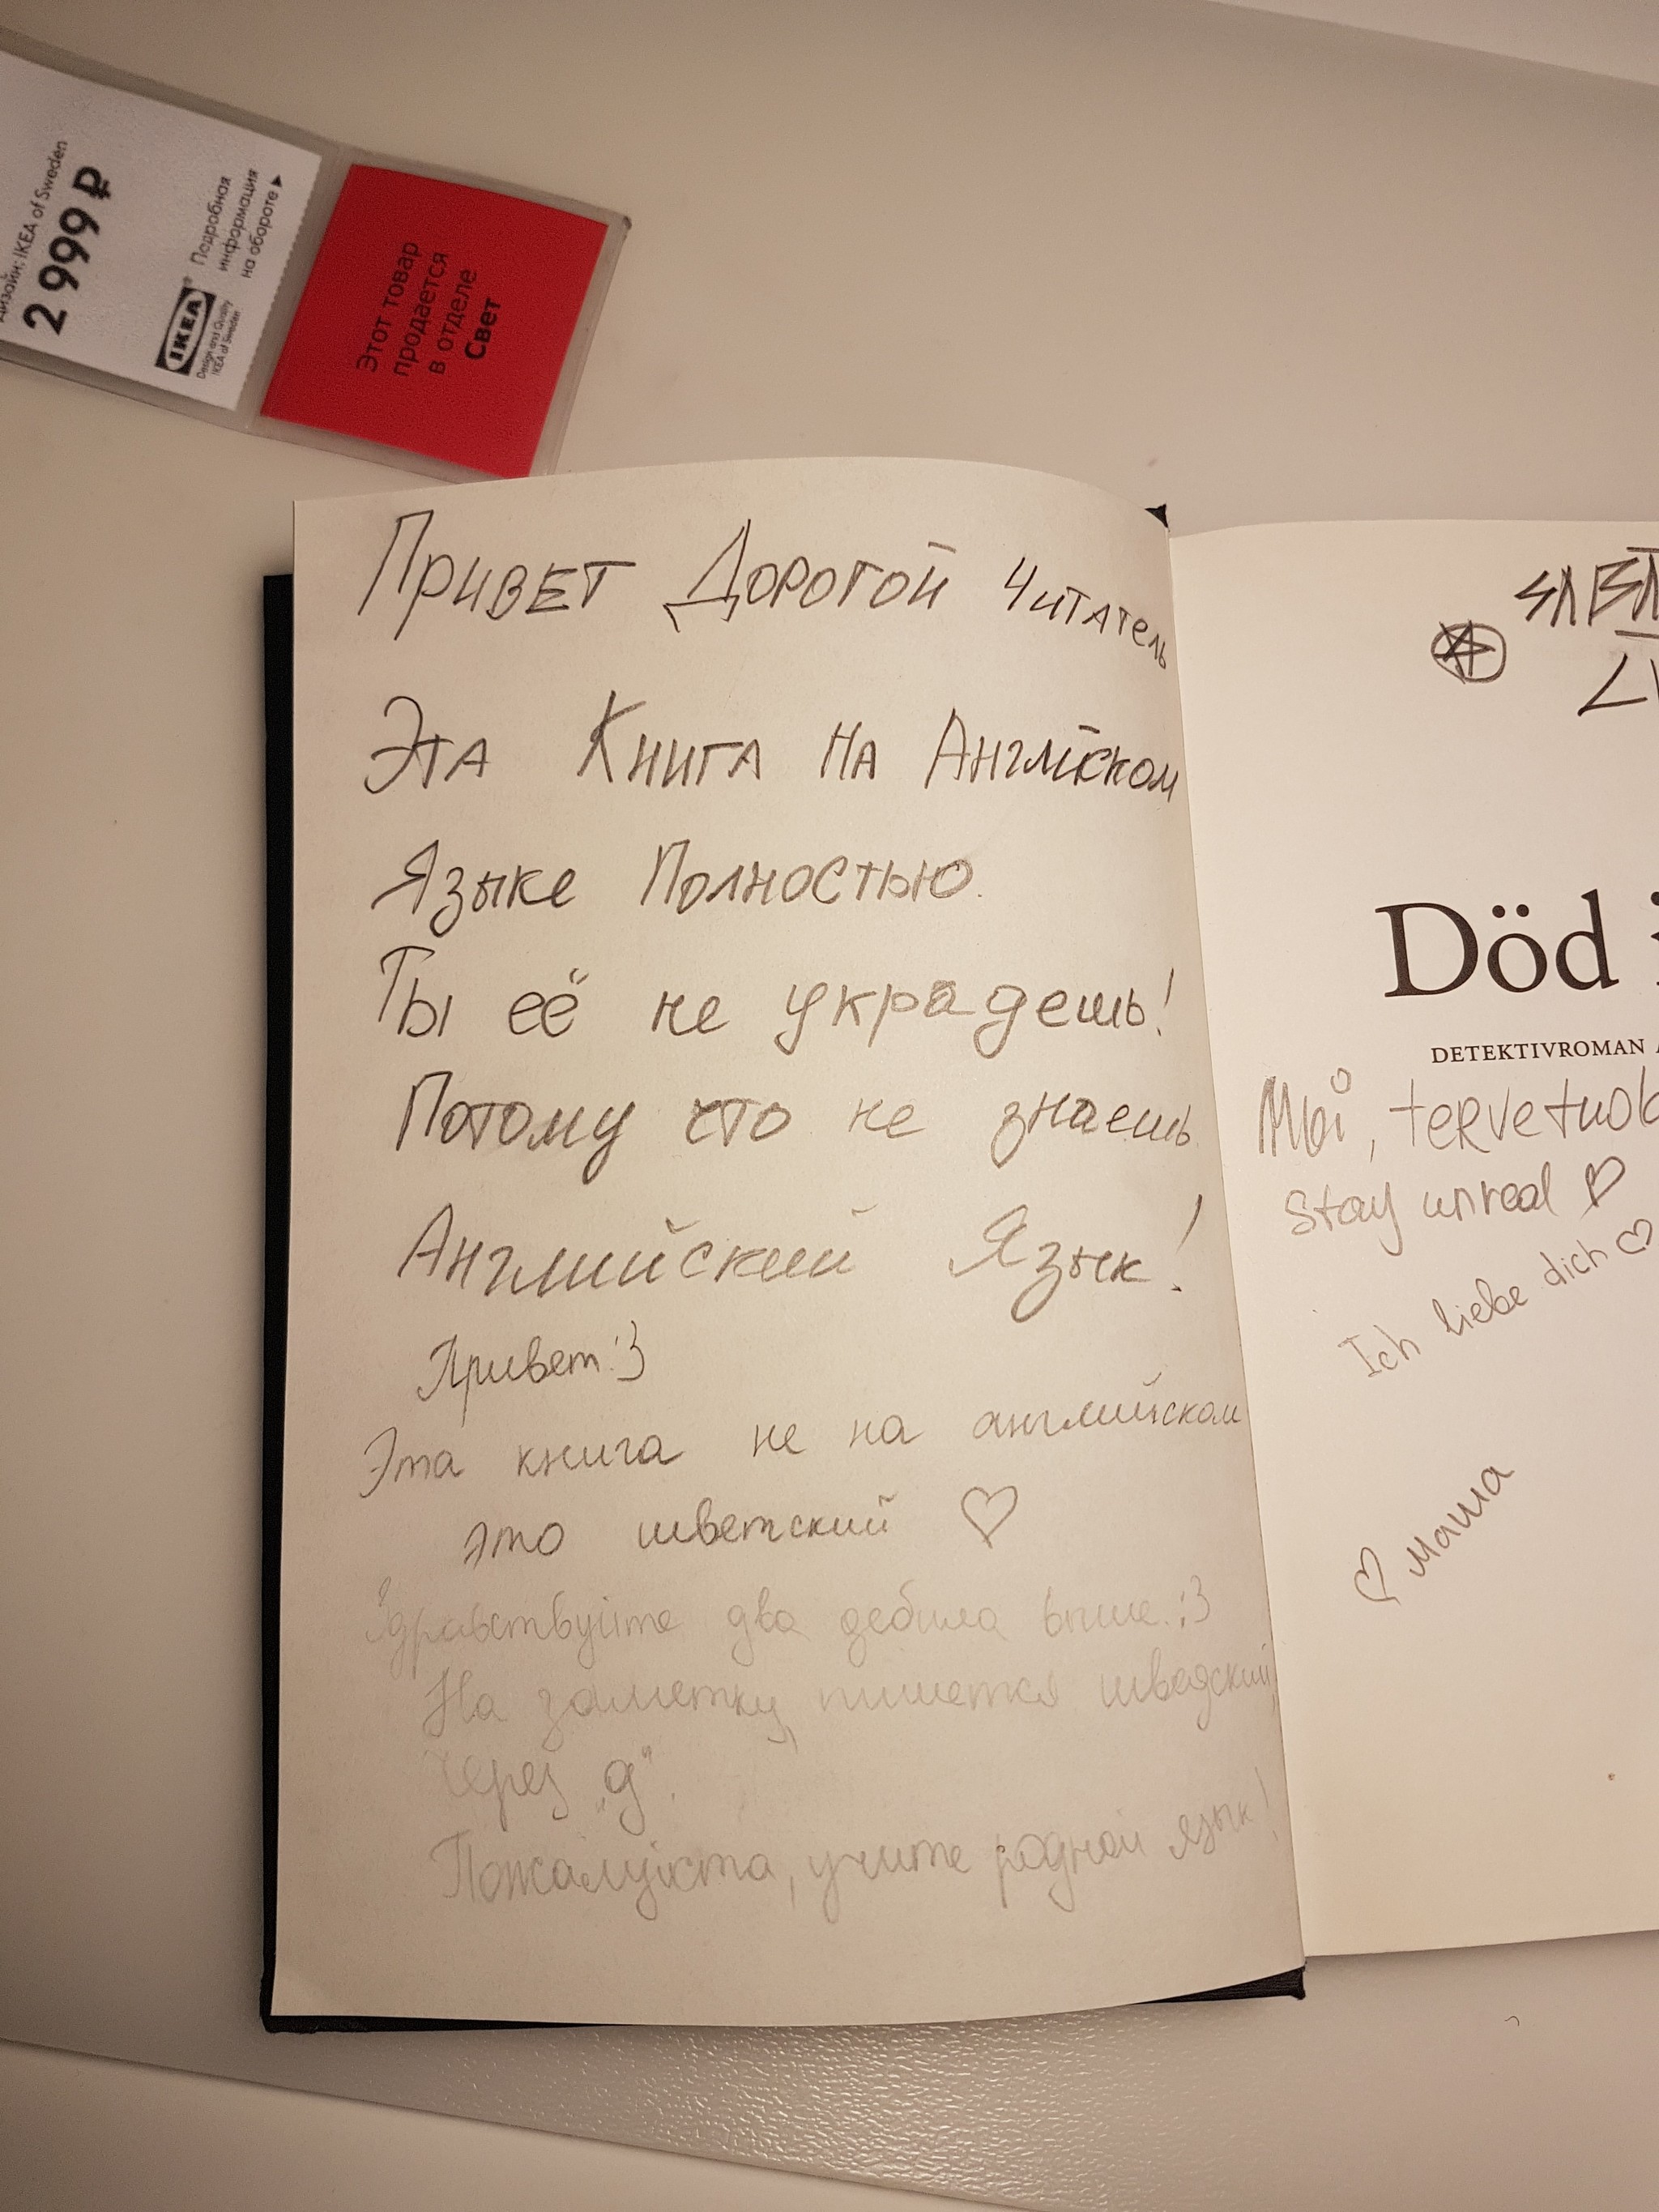 Дизайн: IKEA of Sweden
2 999 ₽
IKEA®
Design and Quality
IKEA of Sweden
Подробная
информация
на обороте ▶
Этот товар
продается
в отделе
Свет
Привет Дорогой Читатель
Эта Книга на Английском
Языке Полностью.
Ты её не украдешь!
Потому что не знаешь
Английский Язык!
Привет :3
Эта книга не на английском
это шветский ♡
Здравствуйте два дебила выше. :3
На заметку, пишется шведский,
через „д".
Пожалуйста, учите родной язык!
Död
DETEKTIVROMAN
Stay unreal ♡
Ich liebe dich ♡
♡ Маша